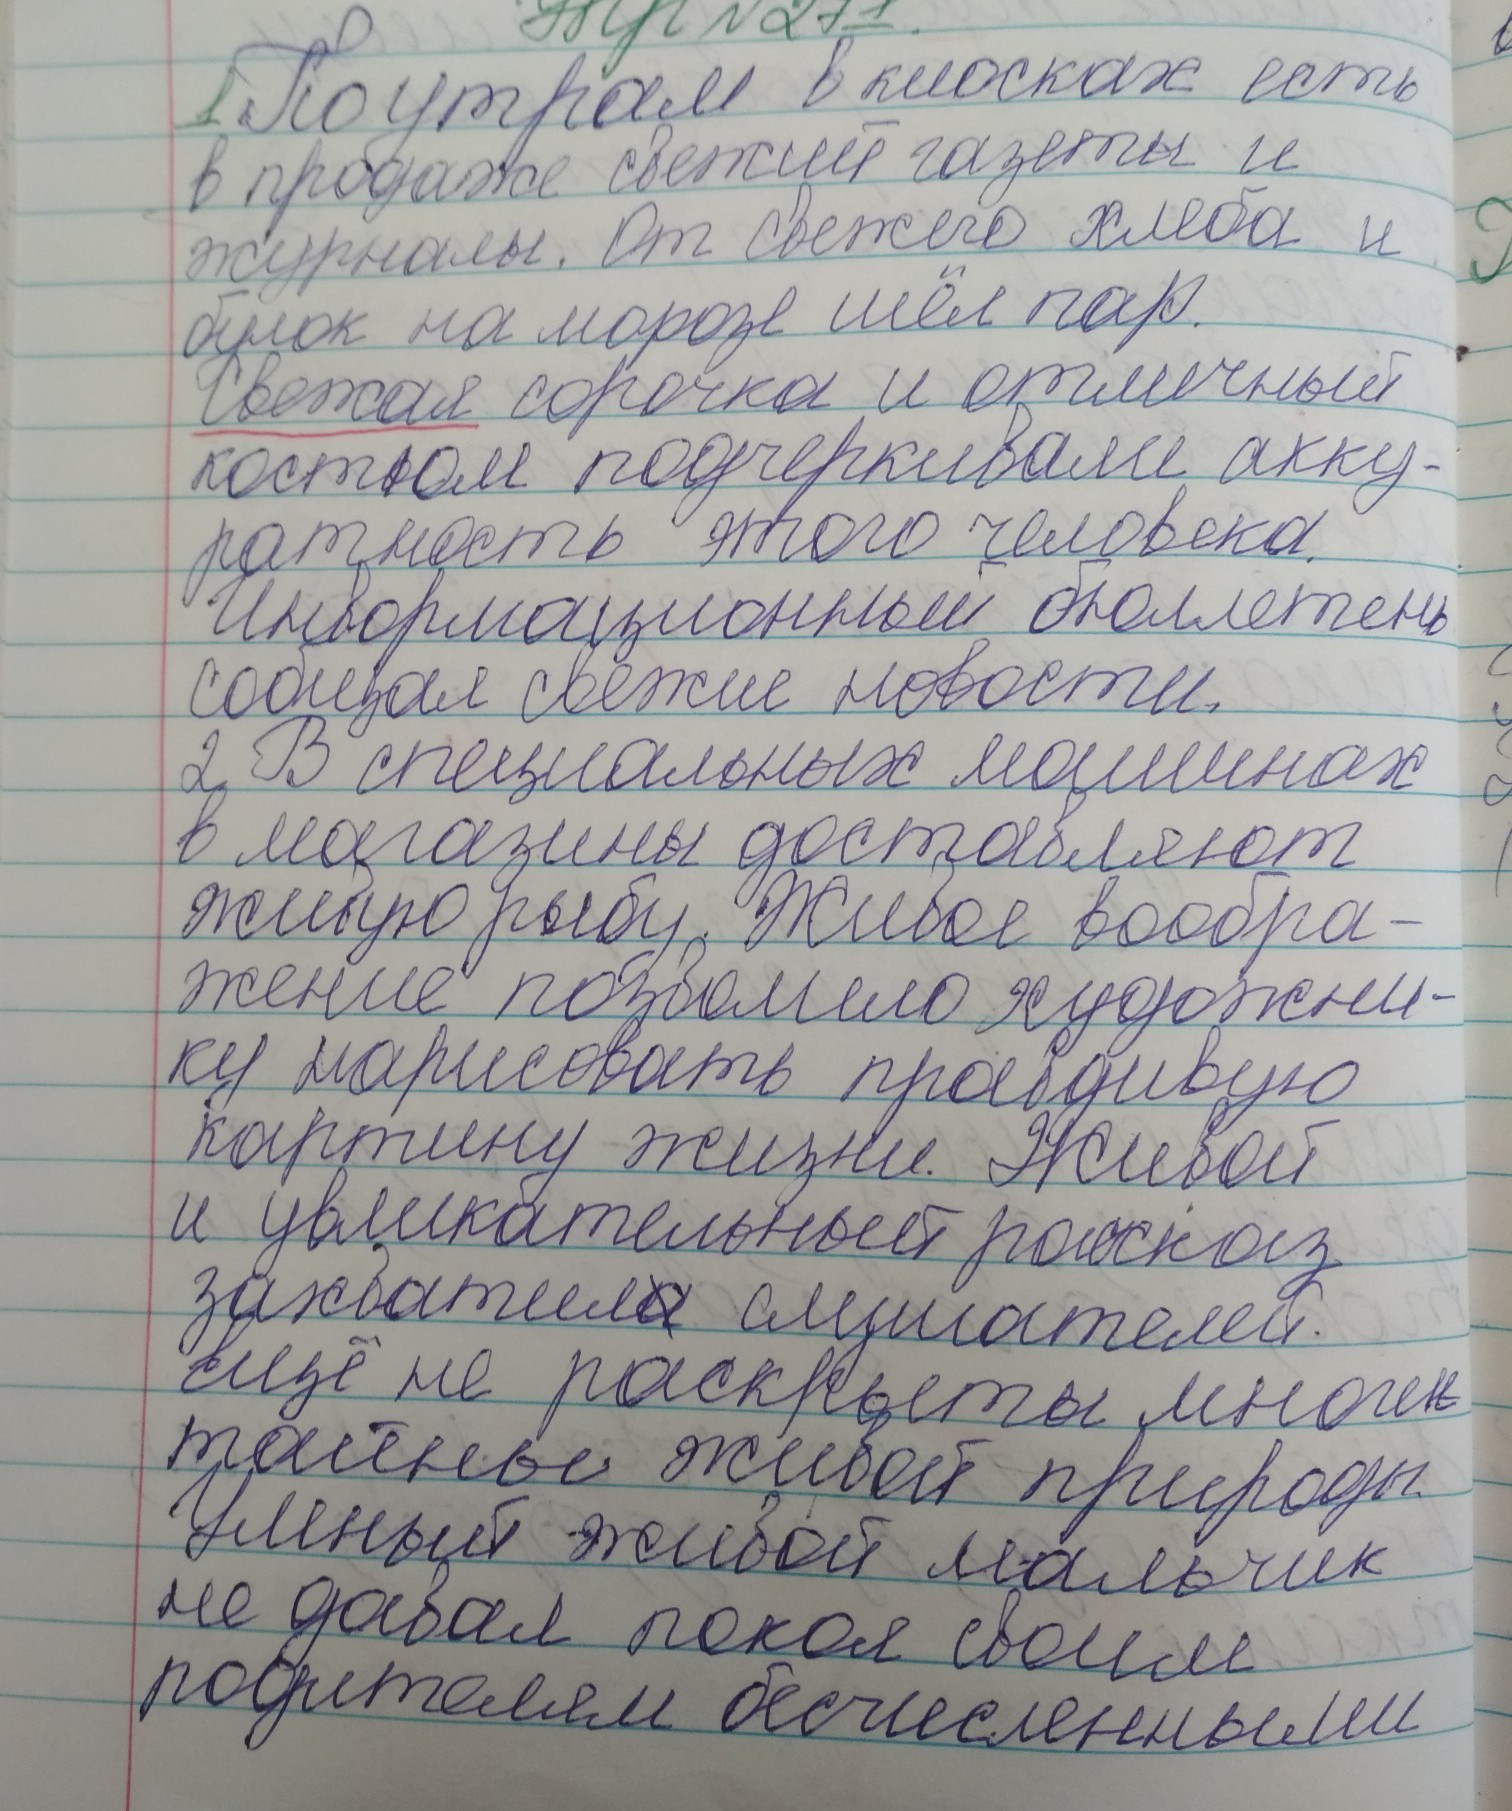 Жұм №271.
1. По утрам в киосках есть
в продаже свежий газеты и
журналы. От свежего хлеба и
булок на морозе шёл пар.
Свежая сорочка и отличный
костюм подчеркивали акку-
ратность этого человека.
Информационный бюллетень
сообщал свежие новости.
2. В специальных машинах
в магазины доставляют
живую рыбу. Живое вообра-
жение позволило художни-
ку нарисовать правдивую
картину жизни. Живой
и увликательный рассказ
захватил слушателей.
ещё не раскрыты многие
тайны живой природы
Умный живой мальчик
не давал покоя своим
родителям бесчисленными